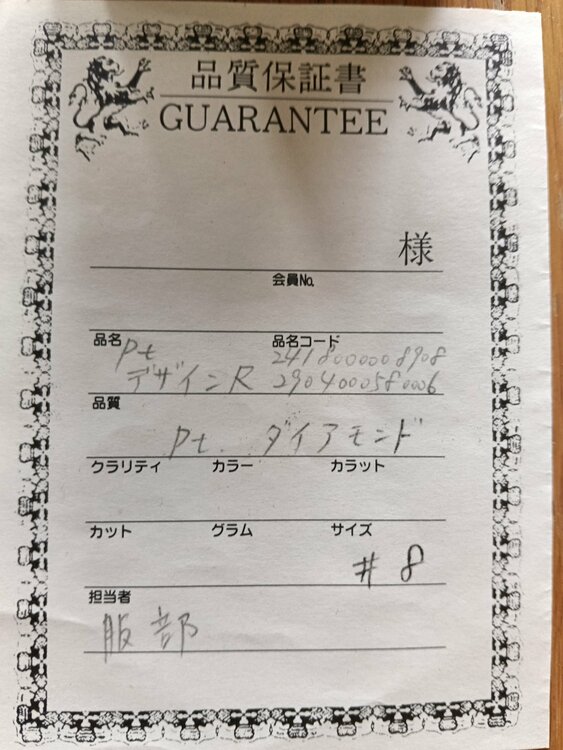 品質保証書
GUARANTEE
様
会員No.
品名 品名コード
Pt 2418000008908
デザインR 2904000580006
品質
Pt. ダイアモンド
クラリティ カラー カラット
カット グラム サイズ
#8
担当者
服部